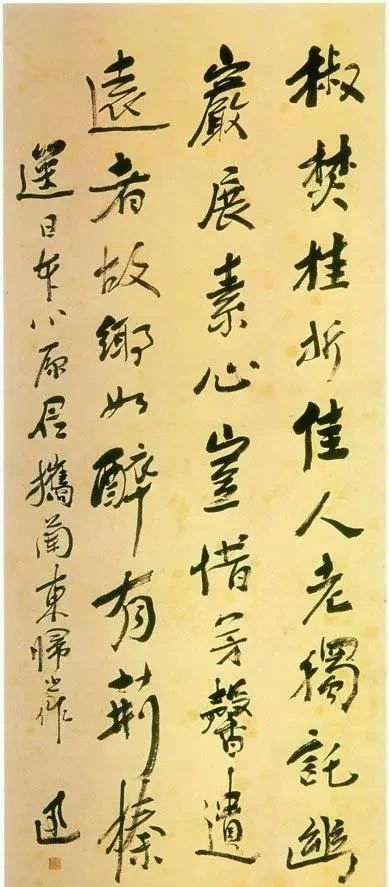 椒焚桂折佳人老獨託幽
巖展素心豈惜芳馨遺
遠者故鄉如醉有荆榛
送日本小原君攜蘭東歸作 迅